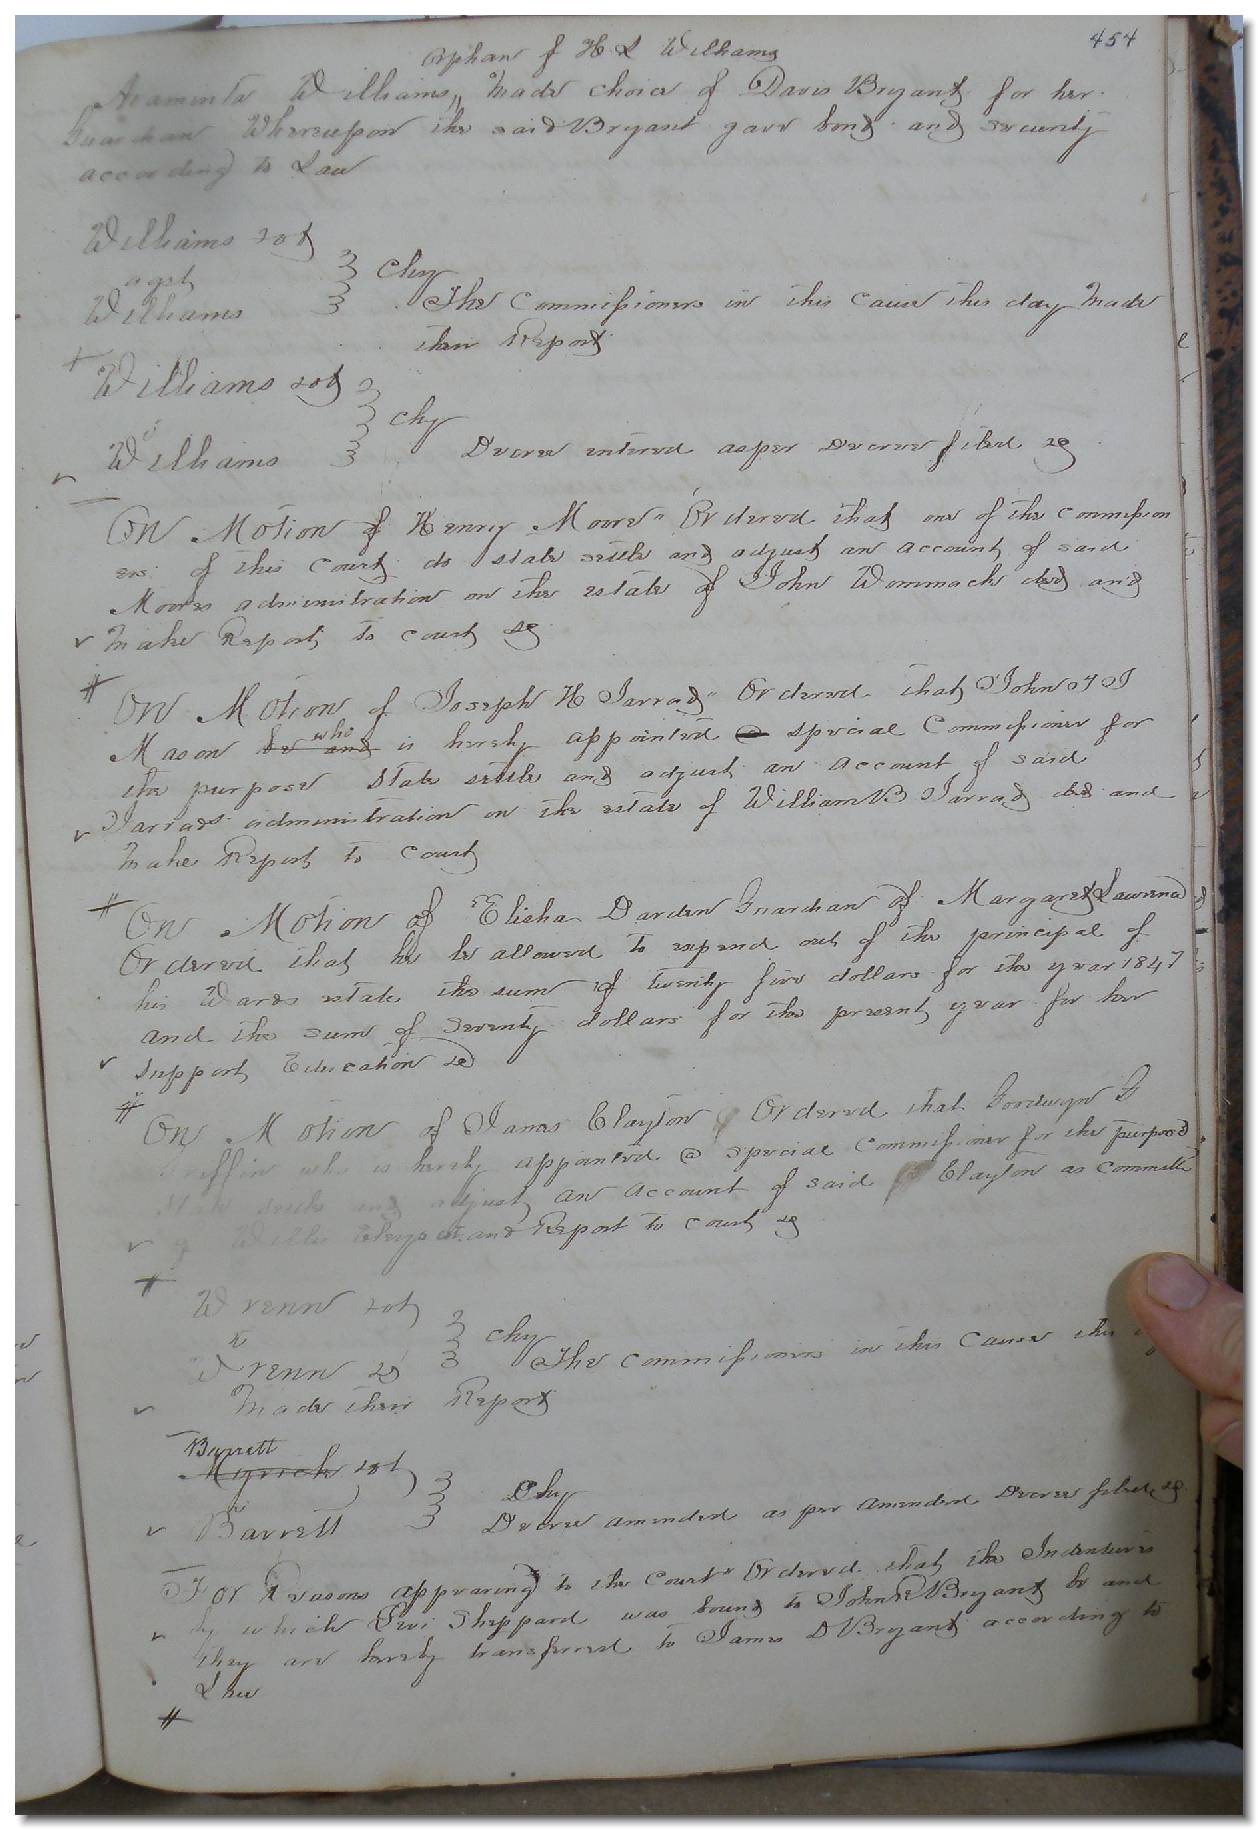 454
orphan of H L Williams
Araminta Williams,, Made choice of Davis Bryant for her
Guardian Whereupon the said Bryant gave bond and security
according to Law
Williams &ct
agst
Williams
Chy
The Commissioners in this Cause this day Made
their Report
Williams &ct
vs
Williams
Chy
Decree entered as per Decree filed &c
On Motion of Henry Moore" Ordered that one of the Commission
ers of this Court do state settle and adjust an account of said
Moores administration on the estate of John Wommack decd and
Make Report to court &c
On Motion of Joseph H Jarrad" Ordered that John T J
Mason be and who is hereby appointed a special Commissioner for
the purpose State settle and adjust an account of said
Jarrads administration on the estate of William B Jarrad decd and
Make Report to Court
On Motion of Elisha Darden Guardian of Margaret Lawrence
Ordered that he be allowed to expend out of the principal of
his Wards estate the sum of twenty five dollars for the year 1847
and the sum of Seventy dollars for the present year for her
support Education &c
On Motion of James Clayton Ordered that Goodwyn G
Griffin who is hereby appointed a special Commissioner for the purpose
State settle and adjust an account of said Clayton as Committee
of Willis and Report to Court &c
Wrenn &ct
vs
Wrenn &c
Chy
The Commissioners in this Cause this
Made their Report
Barrett
Myrick &ct
vs
Barrett
Chy
Decree amended as per amended Decree filed &c
For Reasons appearing to the Court" Ordered that the Indentures
by which Levi Sheppard was bound to John R Bryant be and
they are hereby transferred to James D Bryant according to
Law